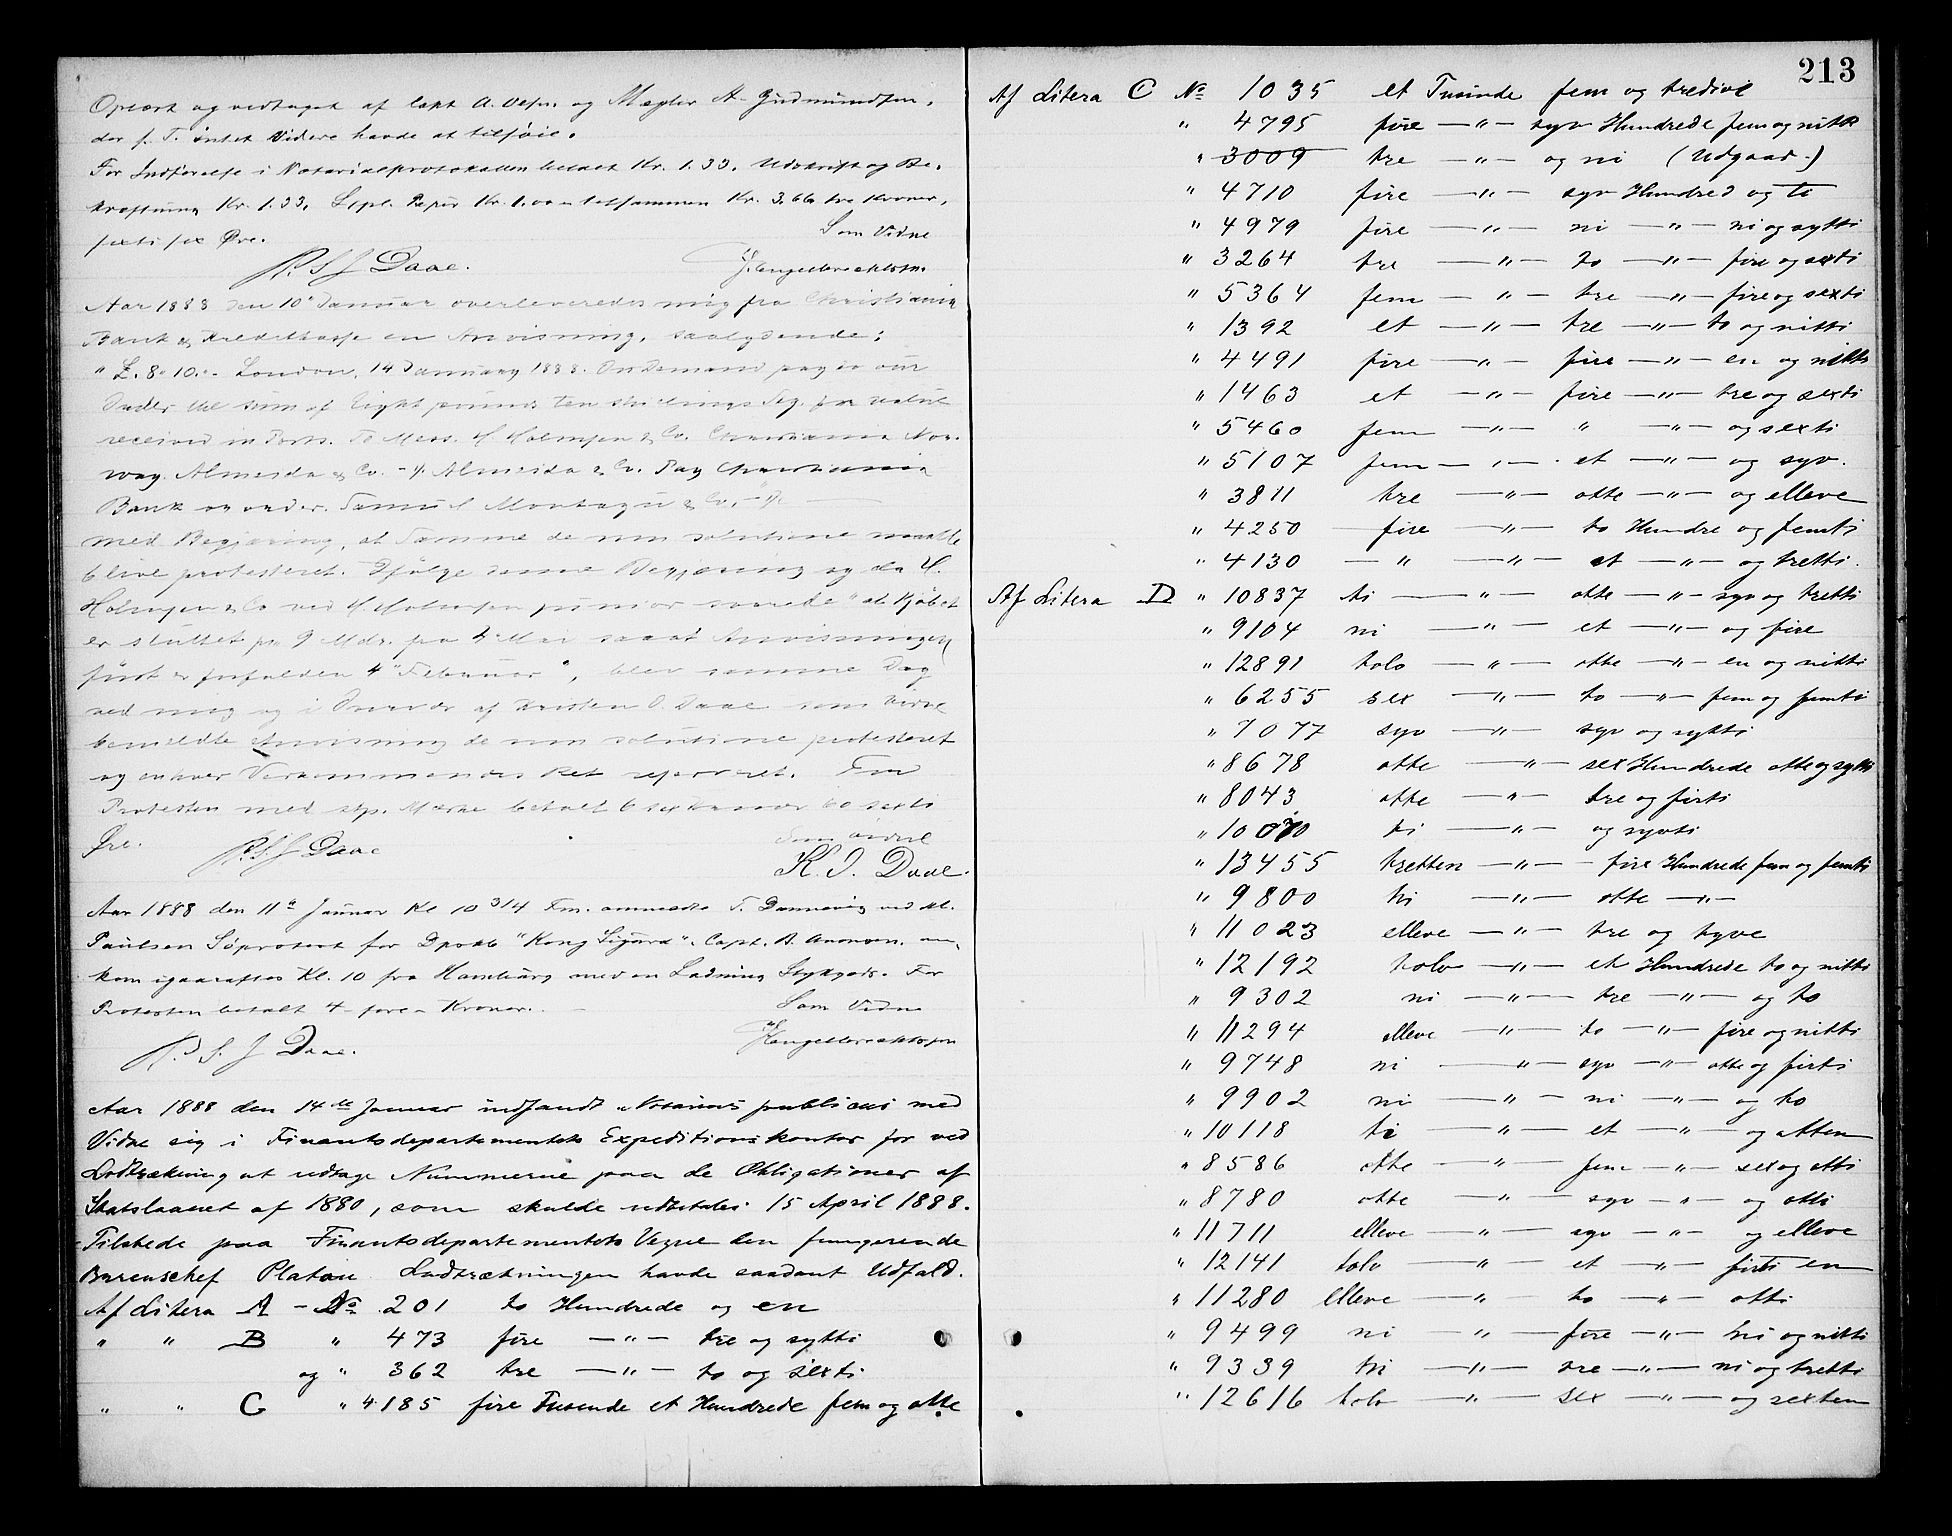 Oplæst og vedtaget af Capt A. og Megler A. Gudmundsen,
der p. T. intet Videre havde at tilføie.
For Indførelse i Notarialprotokollen betalt Kr. 1.33. Udskrift og Be-
kræftning Kr. 1.33. Stpl. Papir Kr. 1.00 = tilsammen Kr. 3.66 tre Kroner,
sexti sex Øre.
Som Vidne
P. S. J Daae.
J. Engelbrechtsen
Aar 1888 den 10 Januar overleveredes mig fra Christiania
Bank & Kreditkasse en Anvisning, saalydende:
" £. 8. 10. - London, 14 January 1888. On Demand pay to our
Order the sum of Eight pounds Ten shillings Stg. for value
received in Ports. To Mess. H. Holmsen & Co. Christiania Nor-
way. Almeida & Co. - Almeida & Co. Pay Christiania
Bank or order. Samuel Montagu & Co.
med Begjæring, at Samme de non solutione maatte
blive protesteret. Ifølge denne Begjæring og da H.
Holmsen & Co ved H. Holmsen junior svarede "at Kjøbet
er sluttet pr. 9 Mdr. fra 4 Mai saaat Anvisningen
først er forfalden 4 Februar", blev samme Dag
ved mig og i Overvær af Kristen O. Daae som Vidne
bemeldte Anvisning de non solutione protesteret
og enhver Vedkommendes Ret reserveret. For
Protesten med stp. Mærke betalt 6 sex Kroner 60 sexti
Øre.
Som Vidne
P. S. J Daae
K. O. Daae.
Aar 1888 den 11te Januar Kl 10 3/4 Fm. anmeldte T. Dannevig ved Hr.
Paulsen Søprotest for Dpskb "Kong Sigurd". Capt. B. Aronsen. an-
kom igaaraftes Kl. 10 fra Hamburg med en Ladning Stykgods. For
Protesten betalt 4 - fire - Kroner.
Som Vidne
P. S. J Daae.
J. Engelbrechtsen
Aar 1888 den 14de Januar indfandt Notarius publicus med
Vidne sig i Finantsdepartementets Expeditionskontor for ved
Lodtrækning at udtage Nummerne paa de Obligationer af
Statslaanet af 1880, som skulde udbetales 15 April 1888.
Tilstede paa Finantsdepartementets Vegne den fungerende
Bureauchef Platou. Lodtrækningen havde saadant Udfald.
Af Litera A - No 201 to Hundrede og en
" " B " 473 fire — " — tre og sytti
og " 362 tre — " — to og sexti
" " C " 4185 fire Tusende et Hundrede fem og otte
213
Af Litera C No 1035 et Tusinde fem og tredive
" 4795 fire — " — syv Hundrede fem og nitti
" 3009 tre — " — og ni (Udgaar.)
" 4710 fire — " — syv Hundred og ti
" 4979 fire — " — ni — " — ni og sytti
" 3264 tre — " — to — " — fire og sexti
" 5364 fem — " — tre — " — fire og sexti
" 1392 et — " — tre — " — to og nitti
" 4491 fire — " — fire — " — en og nitti
" 1463 et — " — fire — " — tre og sexti
" 5460 fem — " — " — " — og sexti
" 5107 fem — " — et — " — og syv.
" 3811 tre — " — otte — " — og elleve
" 4250 fire — " — to Hundre og femti
" 4130 — " — " — et — " — og tretti.
Af Litera D " 10837 ti — " — otte — " — syv og tretti
" 9104 ni — " — et — " — og fire
" 12891 tolv — " — otte — " — en og nitti
" 6255 sex — " — to — " — fem og femti
" 7077 syv — " — syv og sytti
" 8678 otte — " — sex Hundrede otte og sytti
" 8043 otte — " — tre og firti
" 10070 ti — " — og sytti
" 13455 tretten — " — fire Hundrede fem og femti
" 9800 ni — " — otte — " —
" 11023 elleve — " — tre og tyve
" 12192 tolv — " — et Hundrede to og nitti
" 9302 ni — " — tre — " — og to
" 11294 elleve — " — to — " — fire og nitti
" 9748 ni — " — syv — " — otte og firti
" 9902 ni — " — ni — " — og to
" 10118 ti — " — et — " — og atten
" 8586 otte — " — fem — " — sex og otti
" 8780 otte — " — syv — " — og otti
" 11711 elleve — " — syv — " — og elleve
" 12141 tolv — " — et — " — firti en
" 11280 elleve — " — to — " — otti
" 9499 ni — " — fire — " — ni og nitti
" 9339 ni — " — tre — " — ni og tretti
" 12616 tolv — " — sex — " — og sexten